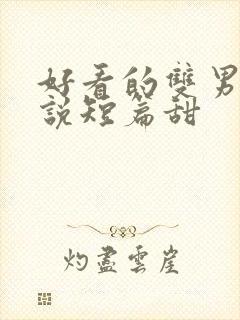 好看的雙男
說短篇甜
灼盡雲崖